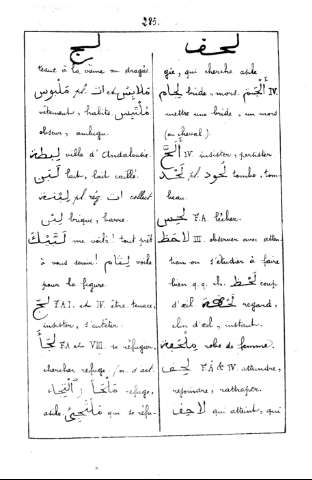 285.
لج
tenant à la veine ou dragés
مَلَابِس pl. ات et مَلْبوس
vêtement, habits مُلْتَبِس
obscur, ambigu.
لَبْطة ville d'Andalousie.
لَبَن lait, lait caillé.
pl. rég. ات collect
لِبْن brique, barre.
لَبَّيْكَ me voilà! tout prêt
à vous servir! لِثَام voile
pour la figure.
لَجَّ F.A.I. et IV. être tenace,
insister, s'entêter.
لَجَأَ F.A et VIII. se réfugier,
chercher refuge,
مَلْجَأ اِلْتِجَاء refuge,
asile, مُلْتَجِئ qui se réfu-
لحف
gie, qui cherche asile
لِجَام bride, mors. أَلْجَمَ IV.
mettre une bride, un mors
(au cheval).
أَلَحَّ IV insister, persister
لَحْد pl. لُحُود tombe, tom-
beau.
لَحِسَ F.A lécher.
لَاحَظَ III. observer avec atten-
tion ou s'étudier à faire
bien q.q. ch. لَحْظ coup
d'œil لَحْظَة regard,
clin d'œil, instant.
مِلْحَفة robe de femme.
لَحِفَ F.A & IV atteindre,
rejoindre, rattraper.
لَاحِف qui atteint, qui